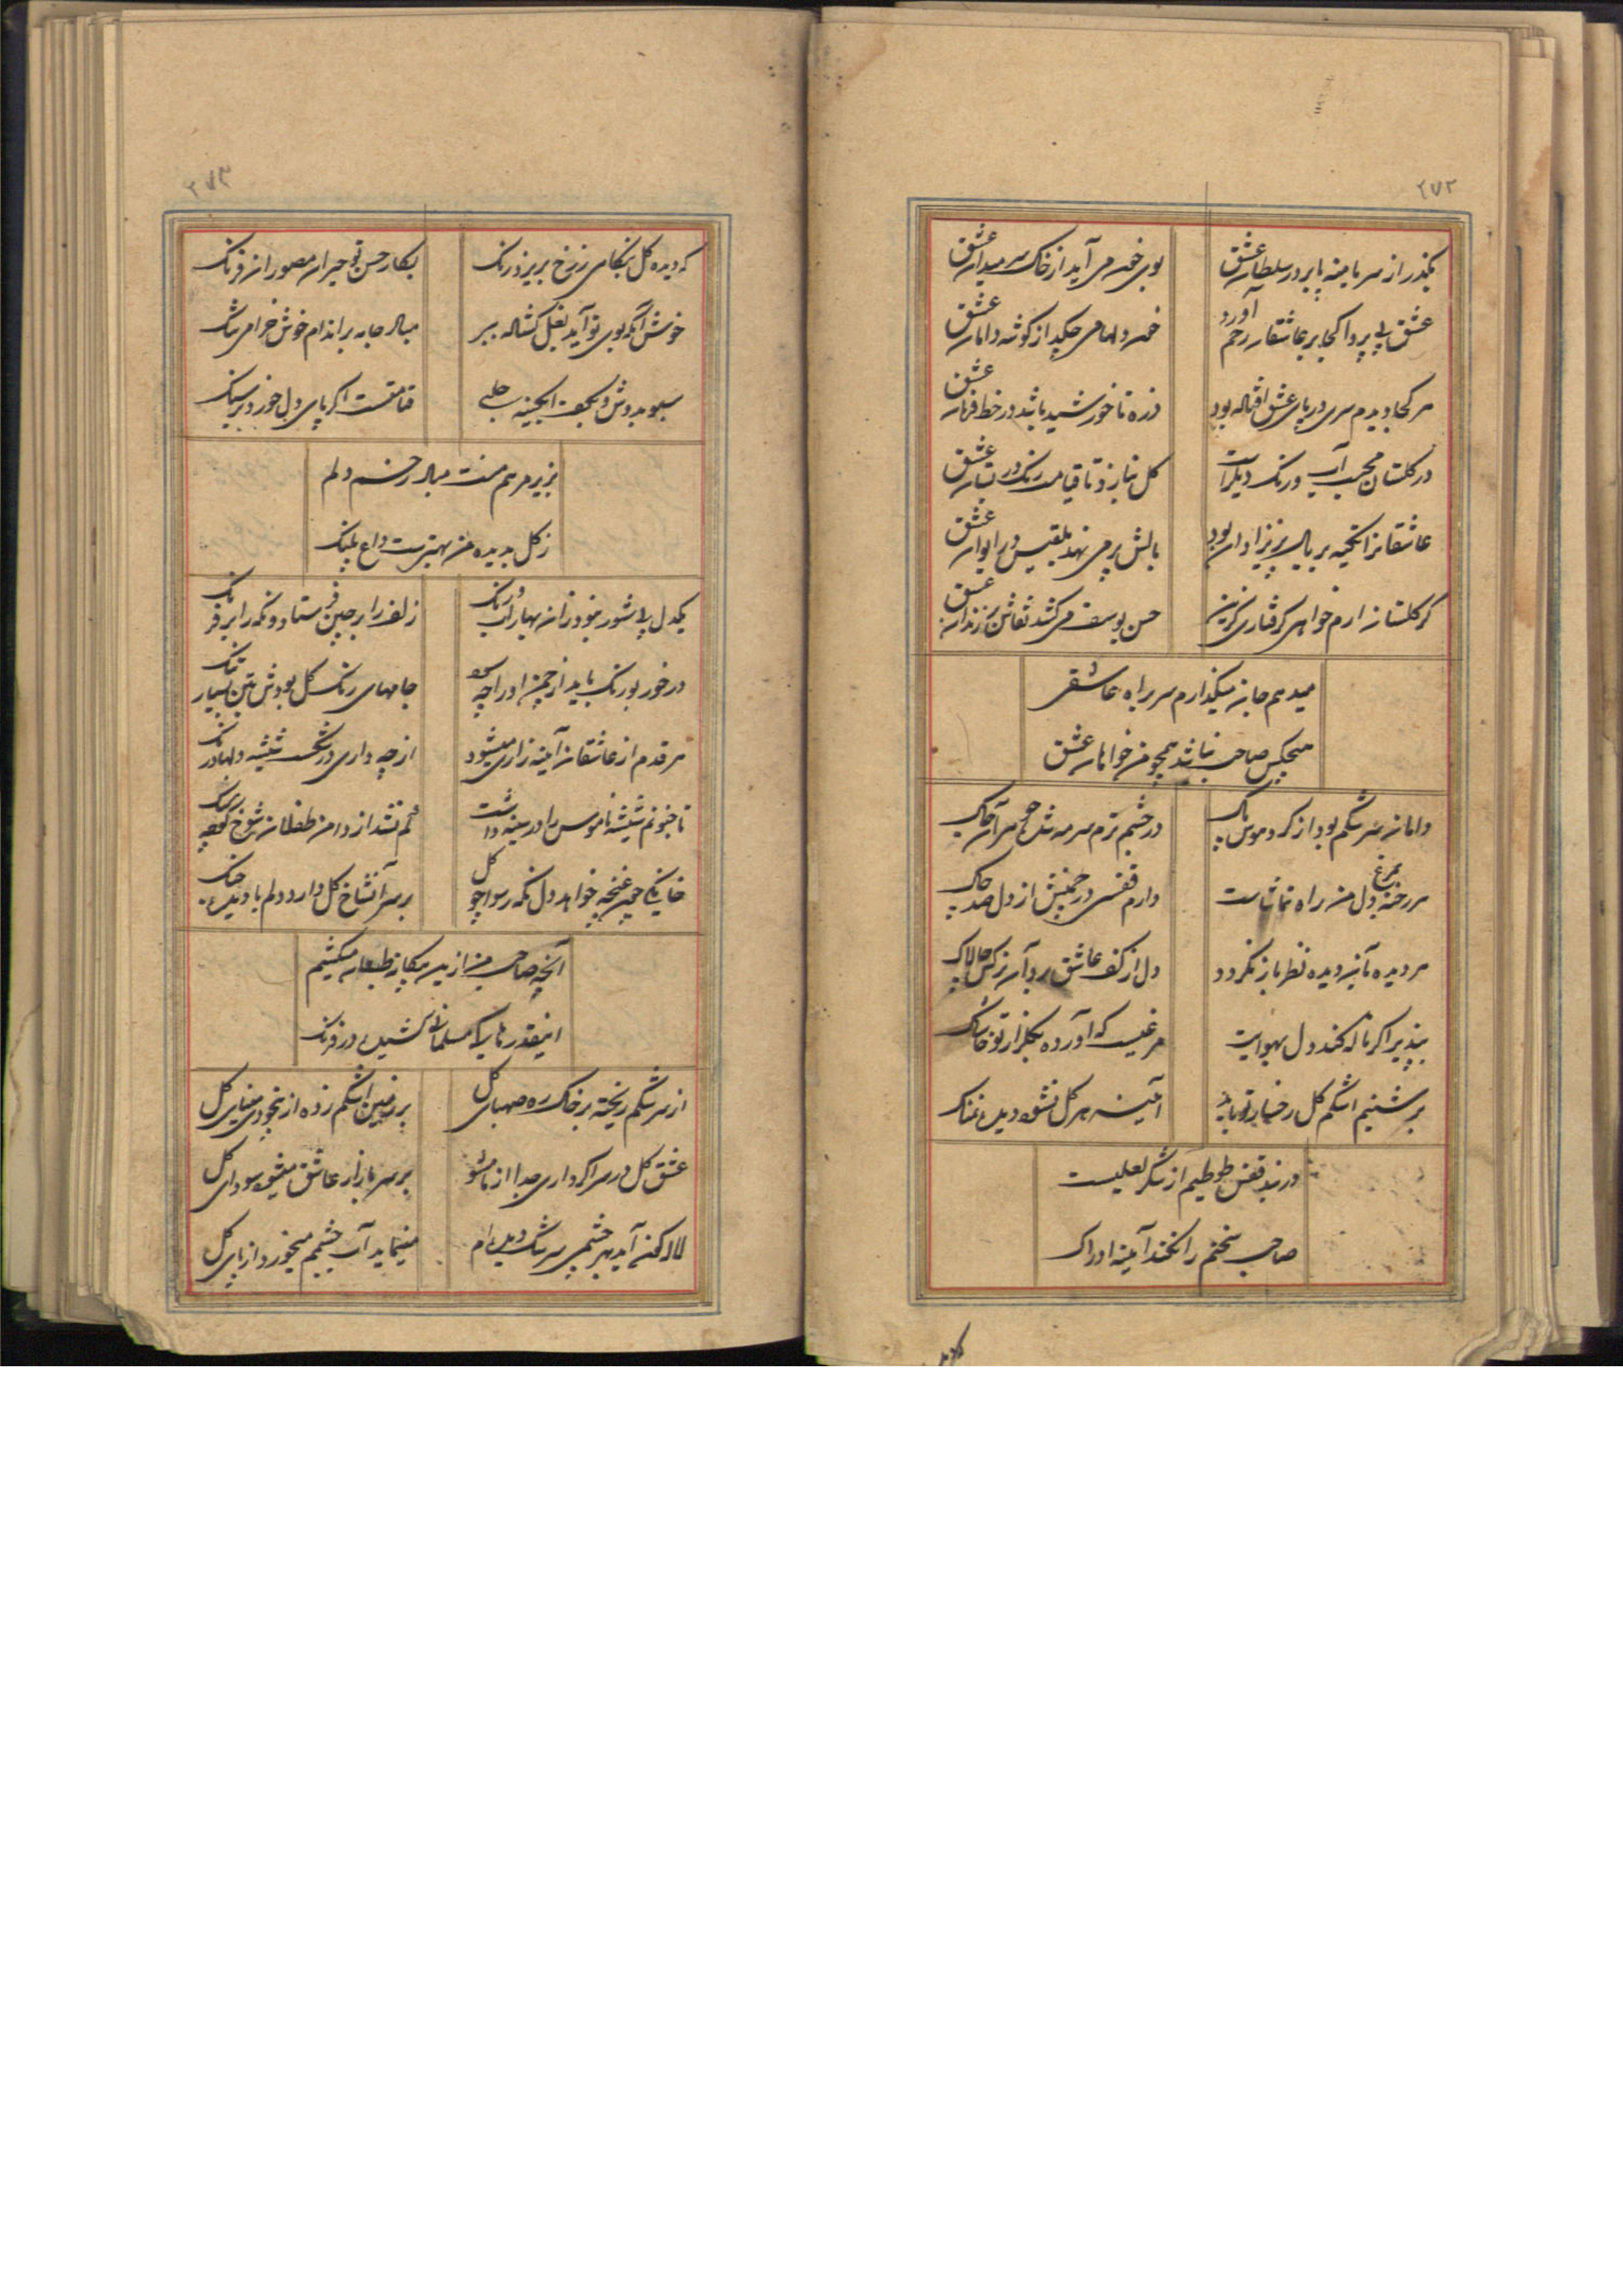 ۲۷۲
بگذر از سر یا منه پا بر در سلطان عشق
بوی خون می آید از خاک سر میدان عشق
عشق بی پروا کجا بر عاشقان رحم آورد
خون دلها می چکد از گوشه دامان عشق
هر کجا دیدم سری در پای عشق افتاده بود
ذره تا خورشید باشد در خط فرمان عشق
در گلستان محبت آب و رنگ دیگر است
گل نبازد تا قیامت رنگ در بستان عشق
عاشقانرا تکیه بر بال پریزادان بود
بالش پر می نهد بلقیس در ایوان عشق
گر گلستان ارم خواهی گرفتاری گزین
حسن یوسف می کشد نقاش در زندان عشق
میدهم جان میگذارم سر براه عاشقی
هیچکس صاحب نباشد همچو من خواهان عشق
دامان سرشکم بود از گرد هوس پاک
در چشم ترم سرمه شد
هر رخنه دل من راه تماشاست
دارم قفسی در چمنش از دل صد چاک
هر دیده بآن دیده نظر باز نگردد
دل از کف عاشق برد آن نرگس چالاک
بپذیر اگر ناله کند دل بهوایت
مرغیست که آورده بگلزار تو خاشاک
بر شبنم اشکم گل رخسار تو باید
آئینه هر گل نشود دیده نمناک
در بند قفس طوطیم از شکر لعلیست
صاحب سخنم را نکند آینه ادراک
۲۷۳
که دیده گل بنگاهی ز رخ بریزد رنگ
بکار حسن تو حیران مصوران فرنگ
خوش آنکه بوی تو آید بغل گشاده ببر
مباد جامه بر اندام خوش خرامی تنگ
سبو بدوش و بکف آبگینه حلبی
قیامتست اگر پای دل خورد بر سنگ
بزیر مرهم منت مباد زخم دلم
ز گل بدیده من بهترست داغ پلنگ
یکدل بی شور نبود زان بهار آب و رنگ
زلف را بر چین فرستاد و نگه را بر فرنگ
در خور بو رنگ باید از چمن او را چو
جامهای رنگ گل بودش بتن بسیار تنگ
هر قدم از عاشقان آینه زاری میشود
از چه داری در شکست شیشه دلها درنگ
تا جنونم شیشه ناموس را در سینه داشت
کم نشد از دامن طفلان شوخ سنگ
خانگی چون غنچه خواهد دل نگه رسوا چو گل
بر سر آنشاخ گل دارد دلم با دیده جنگ
آنچه صاحب من ازین بیگانه طبعان میکشم
اینقدرها کی مسلمانی کشیده در فرنگ
از سرشکم ریخته بر خاک ره صهبای گل
بر زمین اشکم زده از بیخودی مینای گل
عشق گل در سر اگر داری جدا از ما مشو
بر سر بازار عاشق میشود سودای گل
لاله گون آید بهر چشمی سرشک دیده ام
مینماید آب چشمم میخورد از پای گل